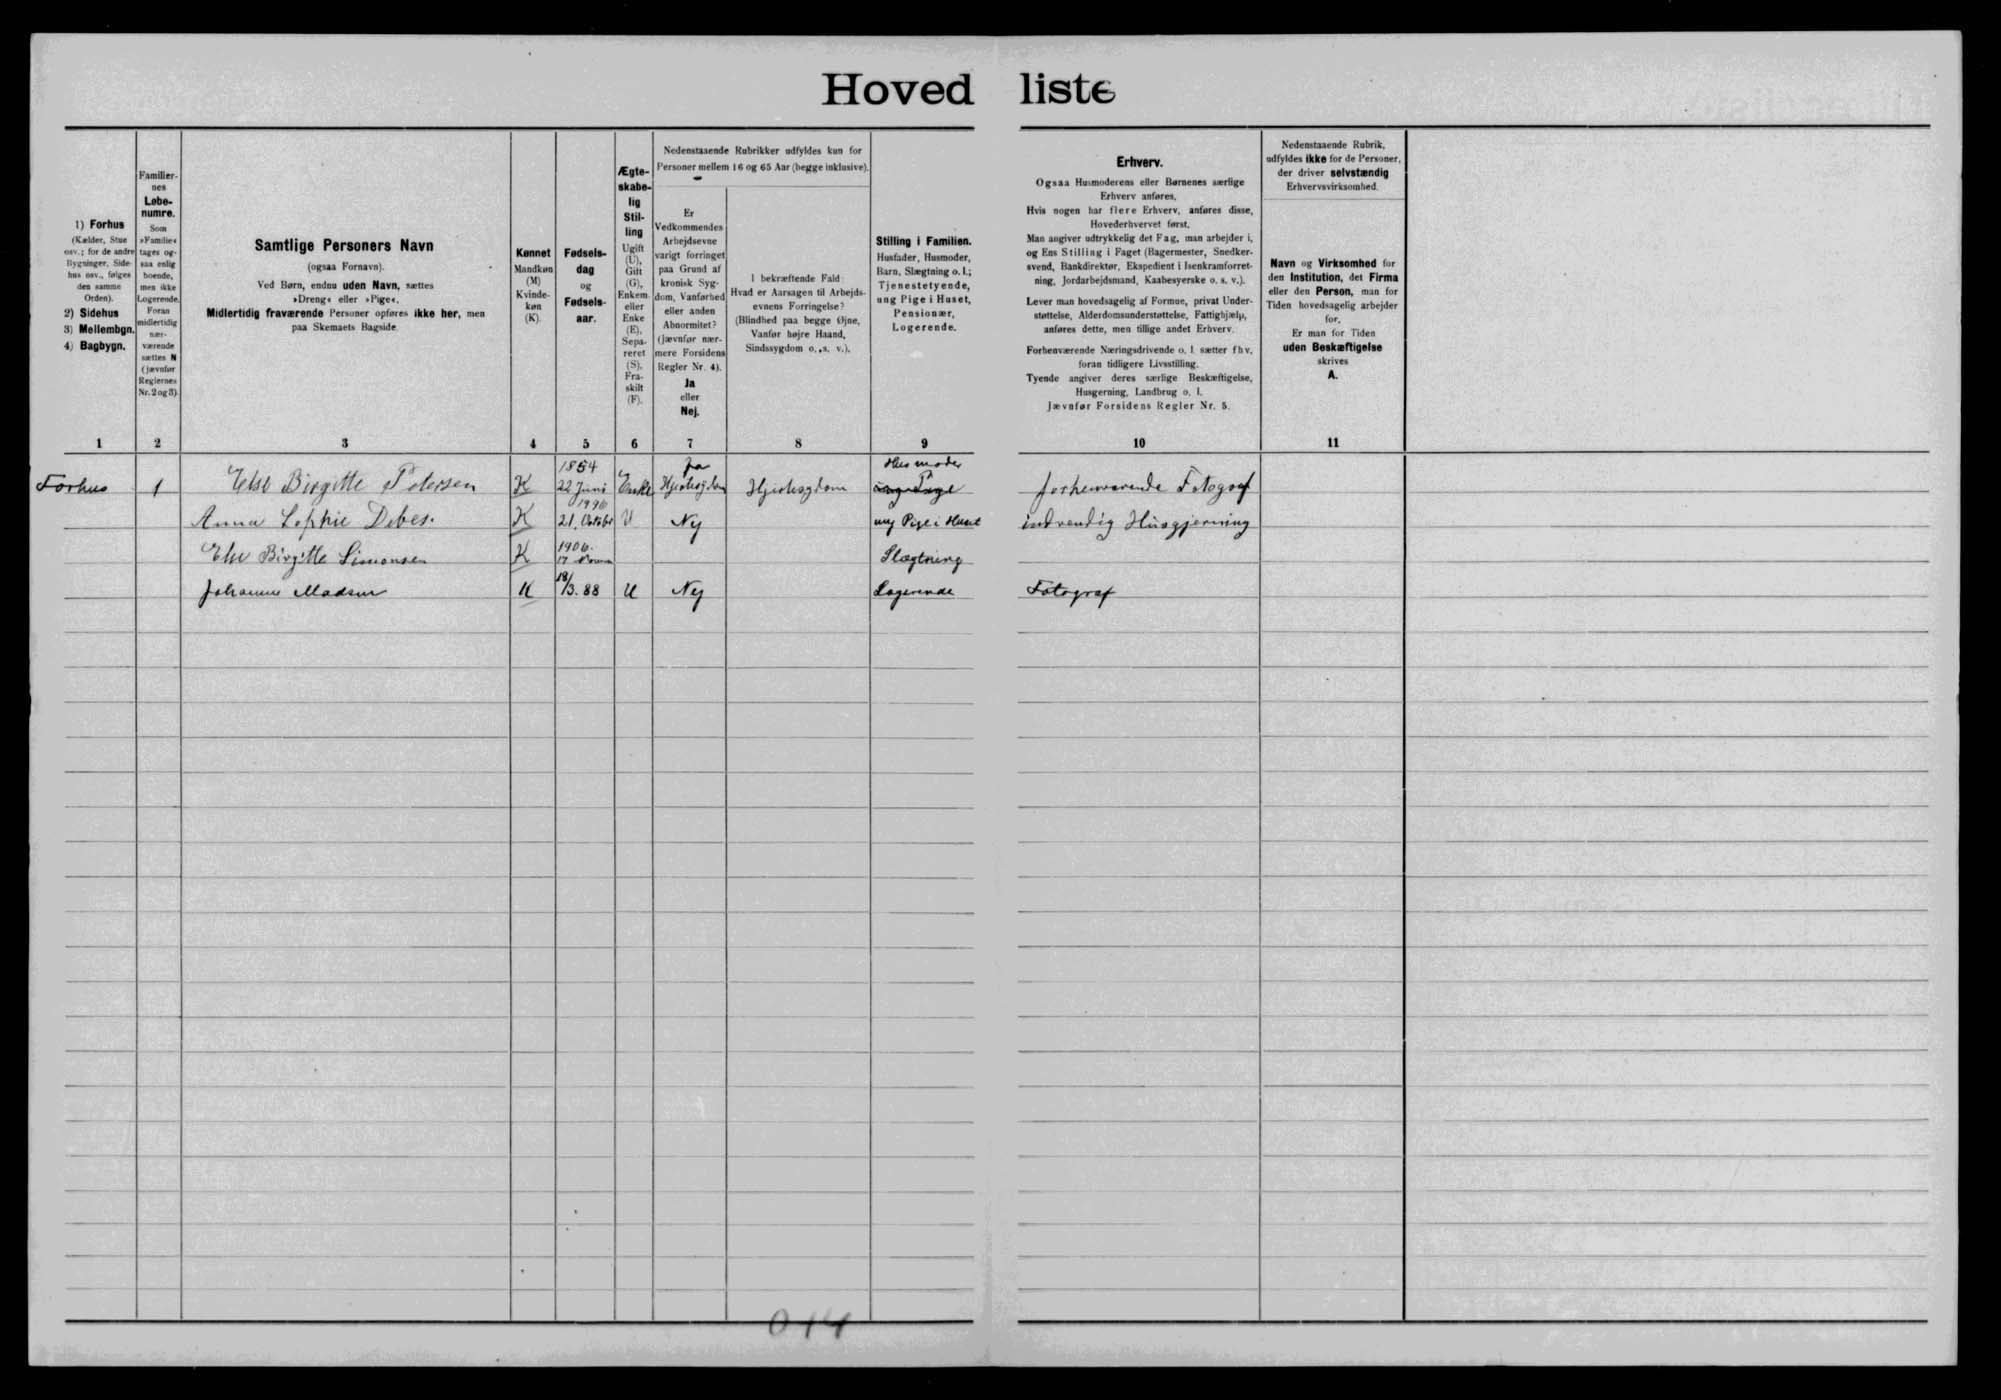 Hovedliste
1) Forhus
(Kælder, Stue
osv.; for de andre
Bygninger, Side-
hus osv., følges
den samme
Orden).
2) Sidehus
3) Mellembgn.
4) Bagbygn.
Familier-
nes
Løbe-
numre.
Som
»Familie«
tages og-
saa enlig
boende,
men ikke
Logerende.
Foran
midlertidig
nær-
værende
sættes N
(jævnfør
Reglernes
Nr. 2 og 3).
Samtlige Personers Navn
(ogsaa Fornavn).
Ved Børn, endnu uden Navn, sættes
»Dreng« eller »Pige«.
Midlertidig fraværende Personer opføres ikke her, men
paa Skemaets Bagside.
Kønnet
Mandkøn
(M)
Kvinde-
køn
(K).
Fødsels-
dag
og
Fødsels-
aar.
Ægte-
skabe-
lig
Stil-
ling
Ugift
(U),
Gift
(G),
Enkem.
eller
Enke
(E),
Sepa-
reret
(S),
Fra-
skilt
(F).
Nedenstaaende Rubrikker udfyldes kun for
Personer mellem 16 og 65 Aar (begge inklusive).
Er
Vedkommendes
Arbejdsevne
varigt forringet
paa Grund af
kronisk Syg-
dom, Vanførhed
eller anden
Abnormitet?
(Jævnfør nær-
mere Forsidens
Regler Nr. 4).
Ja
eller
Nej.
I bekræftende Fald:
Hvad er Aarsagen til Arbejds-
evnens Forringelse?
(Blindhed paa begge Øjne,
Vanfør højre Haand,
Sindssygdom o. s. v.).
Stilling i Familien.
Husfader, Husmoder,
Barn, Slægtning o. l.;
Tjenestetyende,
ung Pige i Huset,
Pensionær,
Logerende.
Erhverv.
Ogsaa Husmoderens eller Børnenes særlige
Erhverv anføres.
Hvis nogen har flere Erhverv, anføres disse,
Hovederhvervet først.
Man angiver udtrykkelig det Fag, man arbejder i,
og Ens Stilling i Faget (Bagermester, Snedker-
svend, Bankdirektør, Ekspedient i Isenkramforret-
ning, Jordarbejdsmand, Kaabesyerske o. s. v.).
Lever man hovedsagelig af Formue, privat Under-
støttelse, Alderdomsunderstøttelse, Fattighjælp,
anføres dette, men tillige andet Erhverv.
Forhenværende Næringsdrivende o. l. sætter fhv.
foran tidligere Livsstilling.
Tyende angiver deres særlige Beskæftigelse,
Husgerning, Landbrug o. l.
Jævnfør Forsidens Regler Nr. 5.
Nedenstaaende Rubrik,
udfyldes ikke for de Personer,
der driver selvstændig
Erhvervsvirksomhed.
Navn og Virksomhed for
den Institution, det Firma
eller den Person, man for
Tiden hovedsagelig arbejder
for.
Er man for Tiden
uden Beskæftigelse
skrives
A.
1 2 3 4 5 6 7 8 9 10 11
1854 ja Husmoder
Forhus 1 Else Birgitte Petersen K 22 Juni Enke Hjertesygdom Hjertesygdom ung Pige forhenværende Fotograf
Anna Sophie Debes. K 21. October U Nej ung Pige i Huset indvendig Husgjerning
1906.
Else Birgitte Simonsen K 17 Slægtning
Johanne Madsen K 18/3. 88 U Nej Logerende Fotograf
014